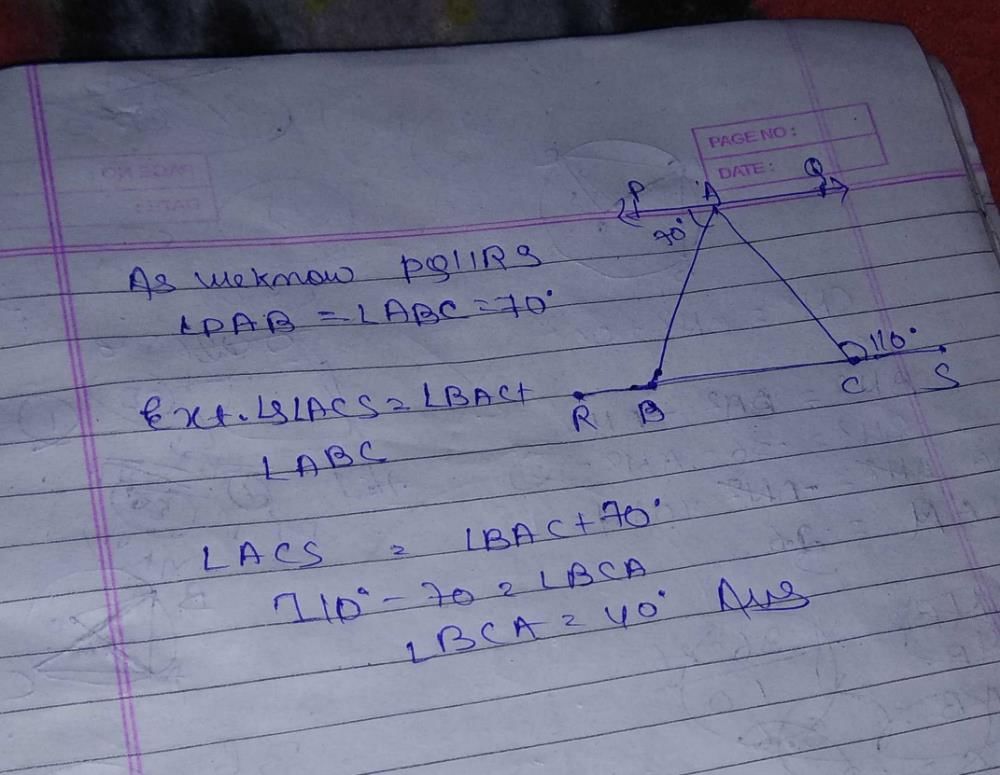 PAGE NO :
DATE :
P A Q
70°
110°
R B C S
As weknow PQ11RS
∠PAB = ∠ABC = 70°
Ext. ∠ACS = ∠BAC+
∠ABC
∠ACS = ∠BAC+70°
110° - 70 = ∠BCA
∠BCA = 40° Ans